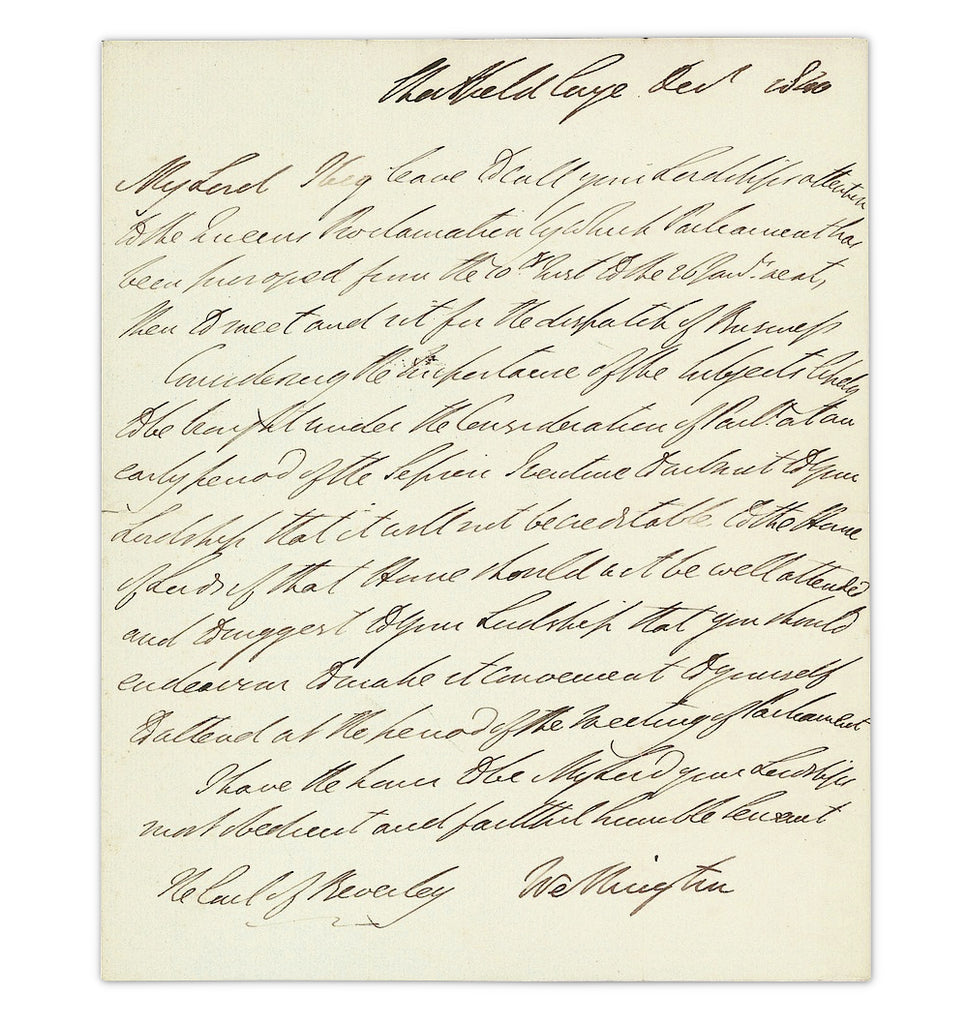 Strathfield Saye Decr 1840
My Lord I beg leave to call your Lordship's attention
to the Queens Proclamation by which Parliament has
been prorogued from the 10th Inst to the 26 Jany. next,
then to meet and sit for the dispatch of Business
Considering the importance of the Subjects likely
to be brought under the Consideration of Parlt. at an
early period of the Session I venture to submit to your
Lordship that it will not be creditable to the House
of Lords if that House should not be well attended
and to suggest to your Lordship that you should
endeavour to make it convenient to yourself
to attend at the period of the Meeting of Parliament
I have the honor to be My Lord your Lordships
most obedient and faithful humble Servant
The Earl of Beverley Wellington